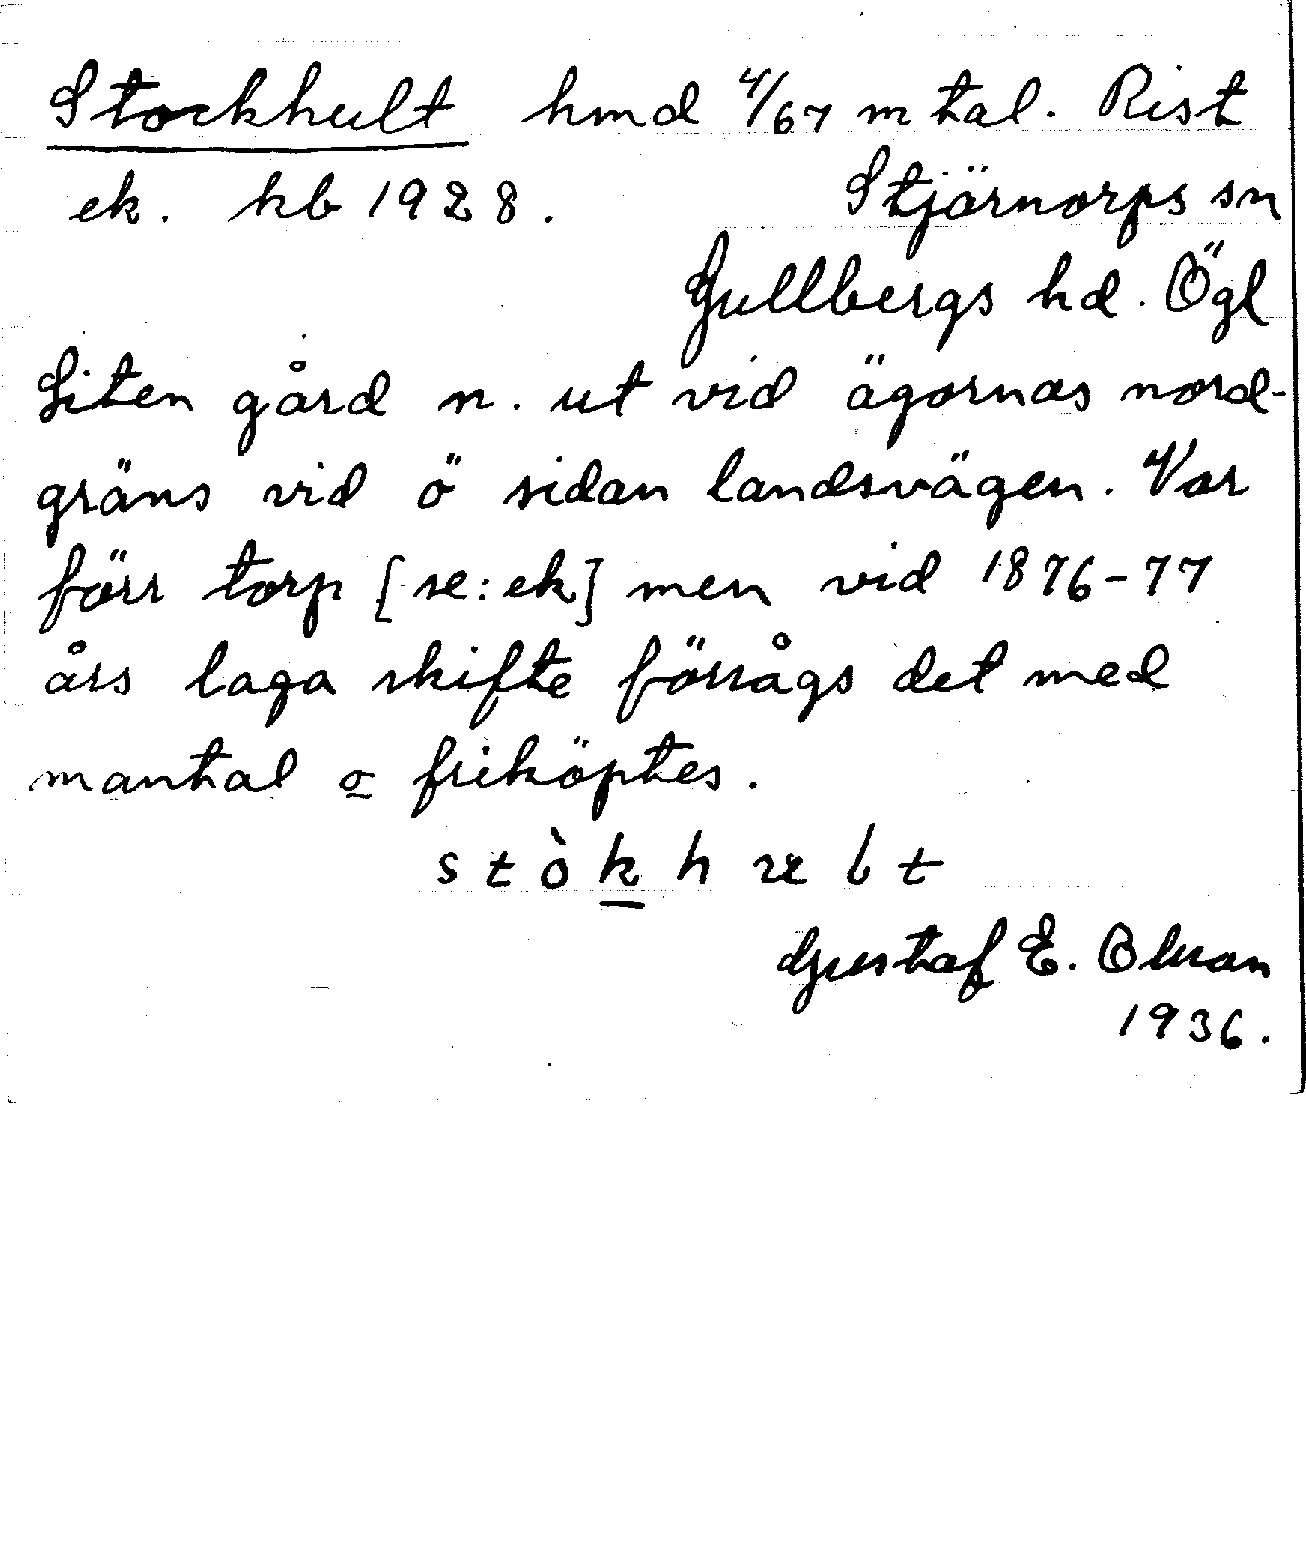 Stockhult hmd 4/67 mtal. Rist
ek. kb 1928. Stjärnorps sn
Gullbergs hd. Ögl
Liten gård n. ut vid ägornas nord-
gräns vid ö sidan landsvägen. Var
förr torp [se: ek] men vid 1876-77
års laga skifte försågs det med
mantal o friköptes.
stòkhult
Gustaf E. Olsson
1936.